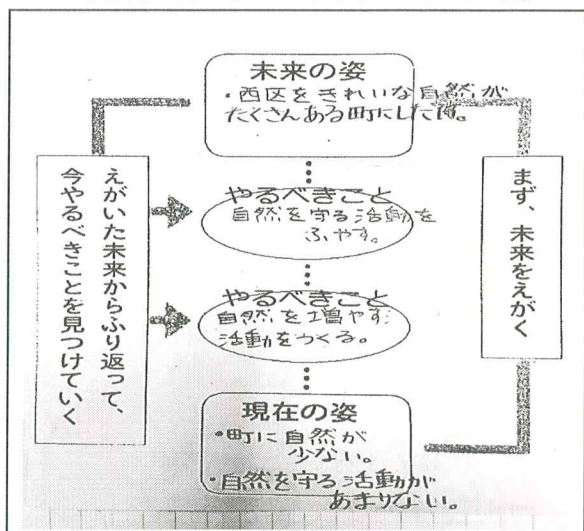 未来の姿
・西区をきれいな自然が
たくさんある町にしたい。
やるべきこと
自然を守る活動を
ふやす。
やるべきこと
自然を増やす
活動をつくる。
現在の姿
・町に自然が
少ない。
・自然を守る活動が
あまりない。
まず、未来をえがく
えがいた未来からふり返って、
今やるべきことを見つけていく